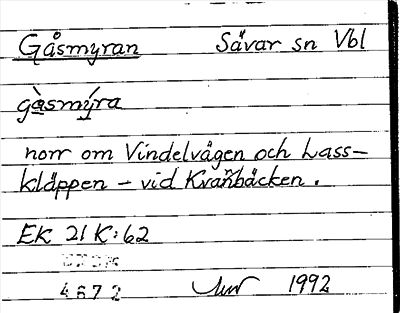 Gåsmyran Sävar sn Vbl
gå̀smy̌ra
norr om Vindelvägen och Lass-
kläppen - vid Kvarnbäcken.
EK 21 K:62
4672 1992